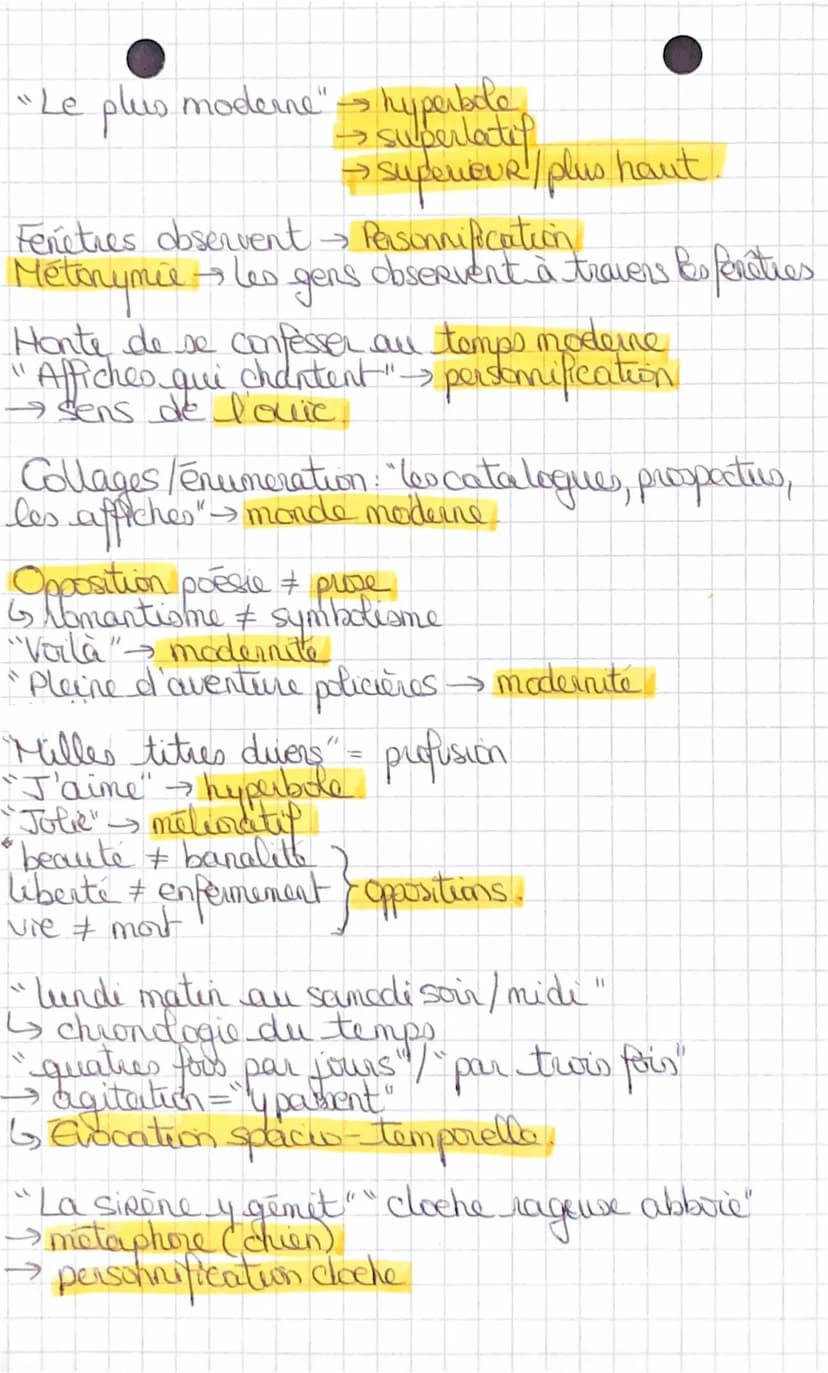 "Le plus moderne" → hyperbole
→ superlatif
→ superieur / plus haut.
Fenêtres observent → Personnification
Métonymie → les gens observent à travers les fenêtres
Honte de se confesser au temps moderne
"Affiches qui chantent" → personnification
→ sens de l'ouïe
Collages / énumeration : "les catalogues, prospectus,
les affiches" → monde moderne
Opposition poésie ≠ prose
↳ Romantisme ≠ symbolisme
"Voilà" → modernité
"Pleine d'aventure policières → modernité
"Milles titres divers" = profusion
"J'aime" → hyperbole
"Jolie" → mélioratif
"beauté ≠ banalité
liberté ≠ enfermement } oppositions.
vie ≠ mort
"lundi matin au samedi soir / midi"
↳ chronologie du temps
"quatres fois par jours" / "par trois fois"
→ agitation = "y passent"
↳ Evocation spacio-temporelle.
"La sirène y gémit" "cloche rageuse abboie"
→ métaphore (chien)
→ personnification cloche